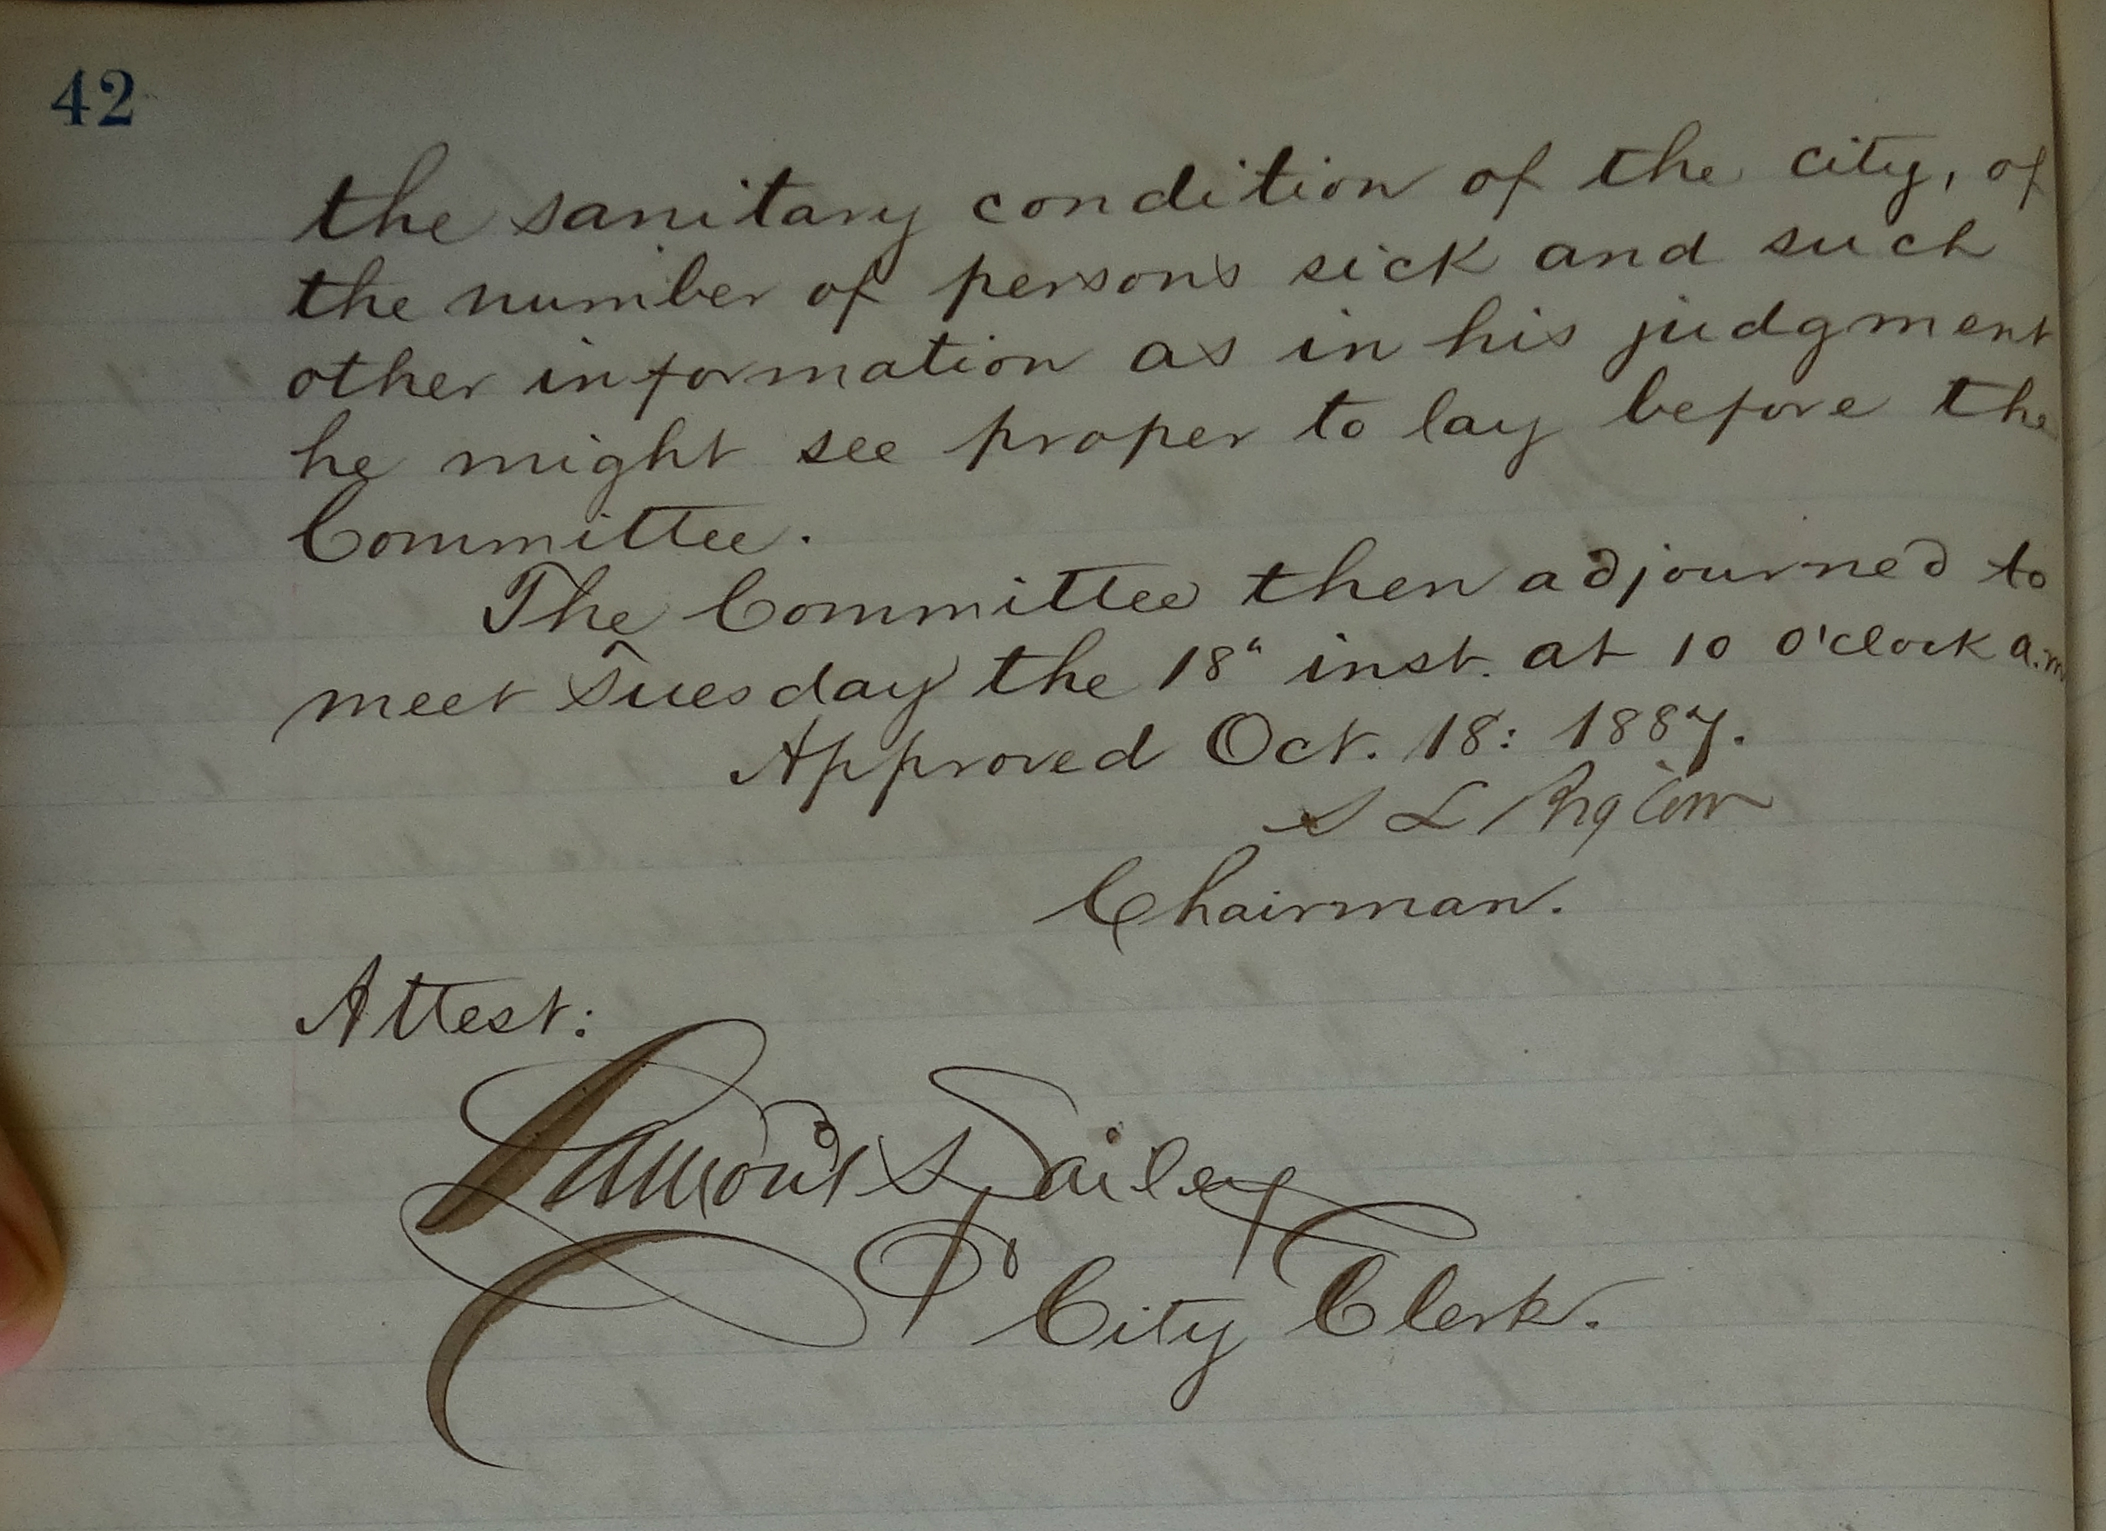 42
the sanitary condition of the city, of
the number of persons sick and such
other information as in his judgment
he might see proper to lay before the
Committee.
The Committee then adjourned to
meet Tuesday the 18" inst. at 10 o'clock a.m
Approved Oct. 18: 1887.
S L
Chairman.
Attest:
City Clerk.